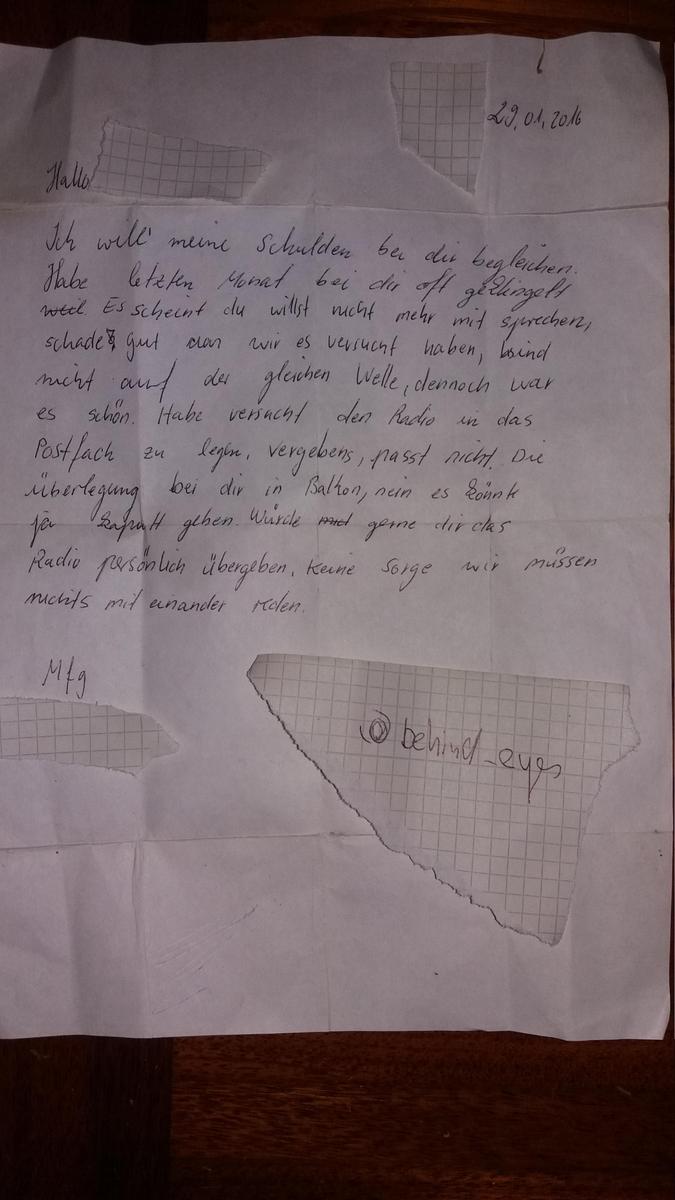 29.01.2016
Hallo
Ich will meine Schulden bei dir begleichen.
Habe letzten Monat bei dir oft geklingelt
weil. Es scheint du willst nicht mehr mit sprechen,
schade gut dan wir es versucht haben, sind
nicht auf der gleichen Welle, dennoch war
es schön. Habe versucht den Radio in das
Postfach zu legen, vergebens, passt nicht. Die
überlegung bei dir in Balkon, nein es könnte
ja kaputt gehen. Würde gerne dir das
Radio persönlich übergeben. Keine Sorge wir müssen
nichts mit einander reden.
Mfg
@behind_eyes